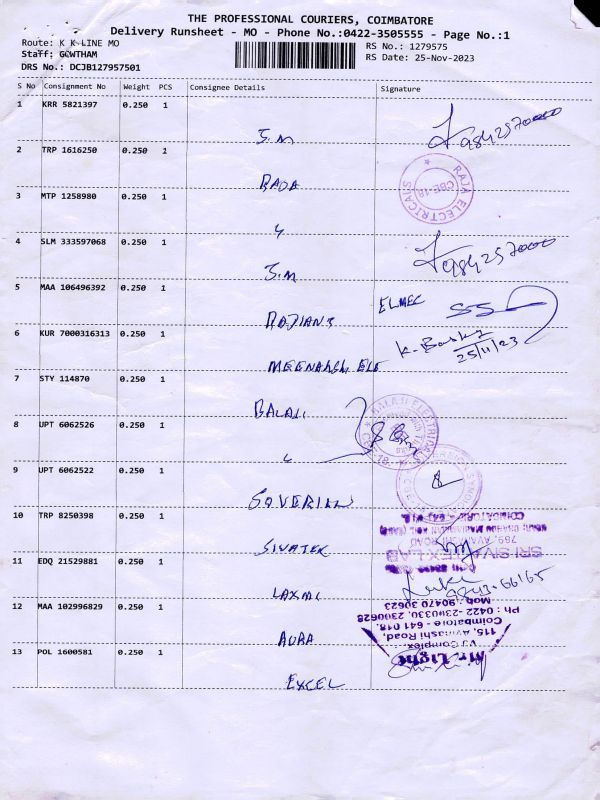 THE PROFESSIONAL COURIERS, COIMBATORE
Delivery Runsheet - MO - Phone No.:0422-3505555 - Page No.:1
Route: K K LINE MO
Staff: GOWTHAM
DRS No.: DCJB127957501
RS No.: 1279575
RS Date: 25-Nov-2023
S No Consignment No Weight PCS Consignee Details Signature
1 KRR 5821397 0.250 1
S.M
2 TRP 1616250 0.250 1
RAJA ELECTRICALS
CBE-18
3 MTP 1258980 0.250 1
4 SLM 333597068 0.250 1
S.M
5 MAA 106496392 0.250 1 ELMEC
6 KUR 7000316313 0.250 1
25/11/23
MEENAKSHI ELE
7 STY 114870 0.250 1
BALAJI
8 UPT 6062526 0.250 1
9 UPT 6062522 0.250 1
10 TRP 8250398 0.250 1
789, AVANASHI ROAD
SRI SIVATEX LAB
SIVATEX
11 EDQ 21529881 0.250 1
LAXMI
12 MAA 102996829 0.250 1
AURA
13 POL 1600581 0.250 1
Mr. Light
VJ Complex
115, Avinashi Road,
Coimbatore - 641 018.
Ph : 0422 - 2390330, 2300628
Mob : 90470 30623
EXCEL